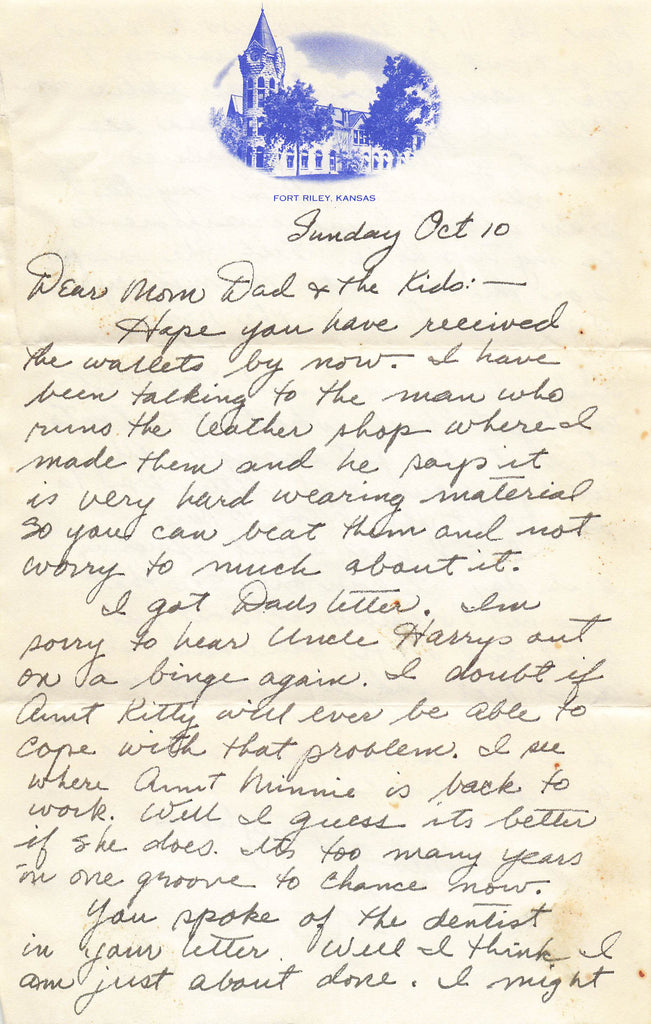 FORT RILEY, KANSAS
Sunday Oct 10
Dear Mom Dad & the Kids:—
Hope you have received
the wallets by now. I have
been talking to the man who
runs the leather shop where I
made them and he says it
is very hard wearing material
so you can beat them and not
worry to much about it.
I got Dads letter. Im
sorry to hear Uncle Harrys out
on a binge again. I doubt if
Aunt Kitty will ever be able to
cope with that problem. I see
where Aunt Minnie is back to
work. Well I guess its better
if she does. Its too many years
in one groove to chance now.
You spoke of the dentist
in your letter. Well I think I
am just about done. I might